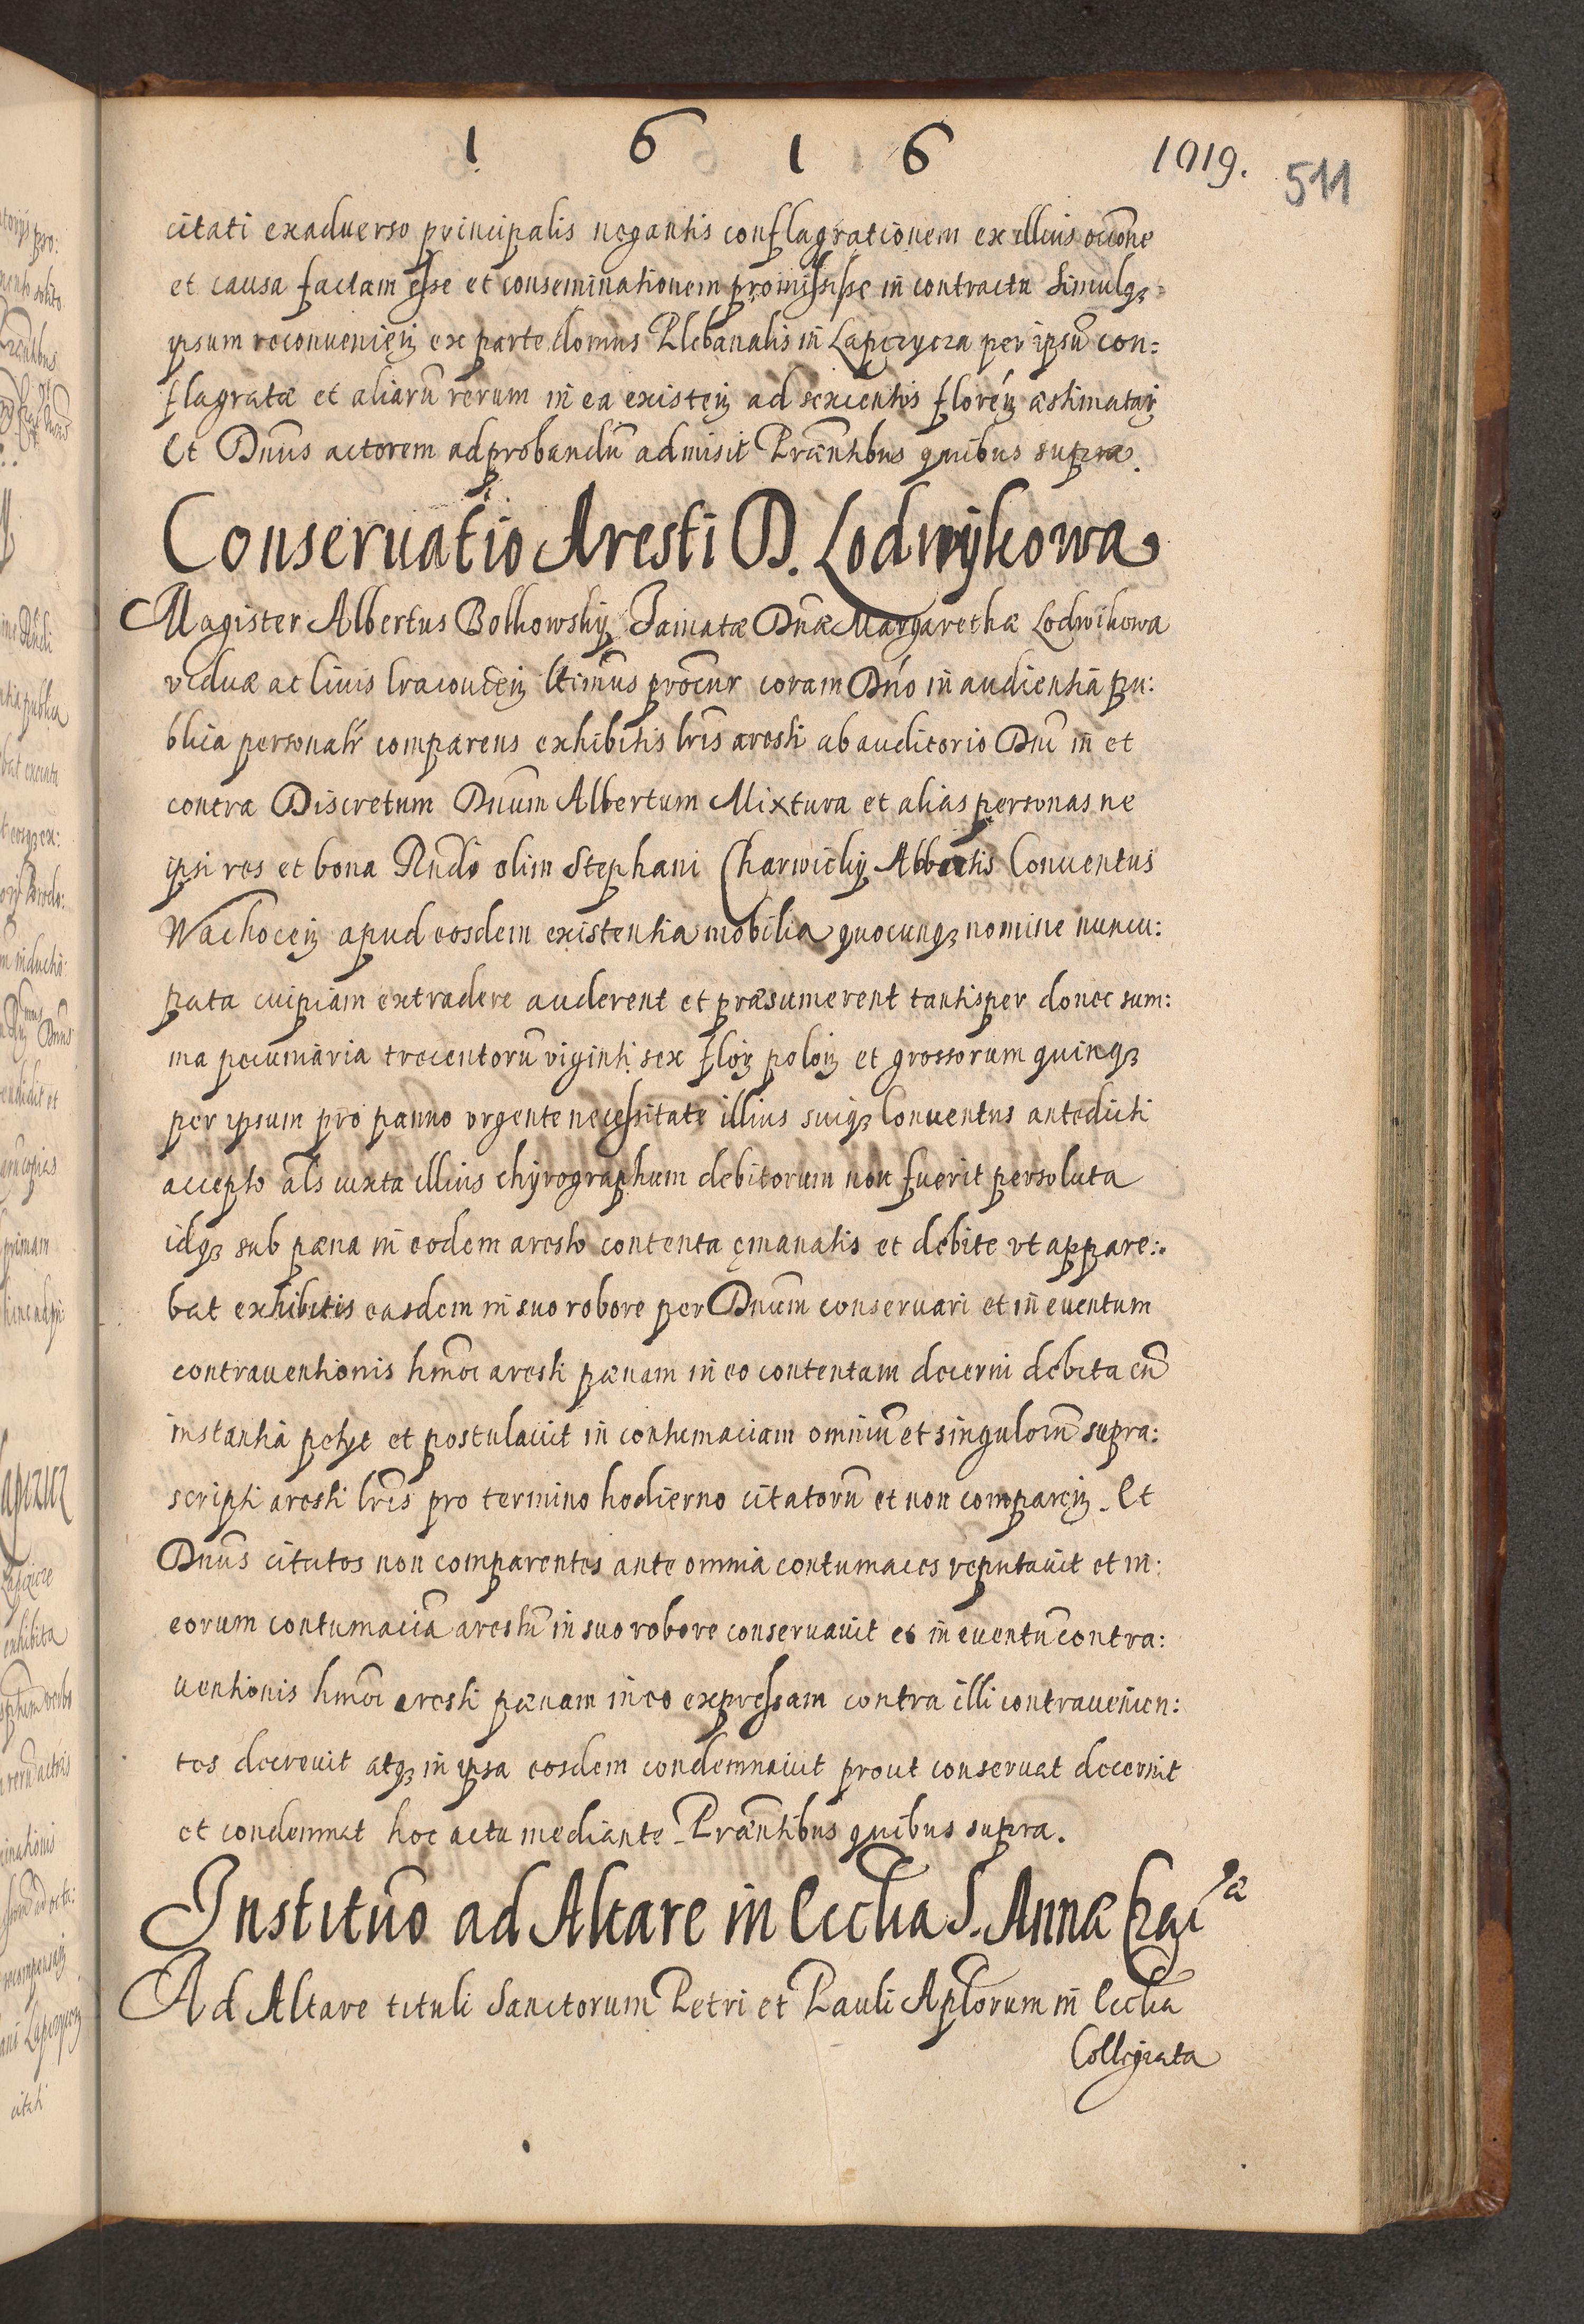 1 6 1 6 1019. 511
citati exaduerso principalis negantis conflagrationem ex illius occõne
et causa factam esse et conseminationem promisisse in contractu simulqȝ
ipsum reconvenieñ ex parte domus Plebanalis in Lapczycza per ipsũ con:
flagratæ et aliarũ rerum in ea existeñ ad sexcentis floreñ æstimatar
Et Dnũs actorem ad probandũ admisit Præntibus quibus supra.
Conseruatio Aresti D. Lodwijkowa
Magister Albertus Bolkowskij Famatæ Dnæ Margarethæ Lodwikowa
viduæ ac Ciuis Cracouieñ ltimũs procũr coram Dnõ in audientia pu:
blica personalr̃ comparens exhibitis lrĩs aresti ab auditorio Dnĩ in et
contra Discretum Dnũm Albertum Mixtura et alias personas ne
ipsi res et bona Rndĩ olim Stephani Charwickij Abbatis Conuentus
Wachoceñ apud eosdem existentia mobilia quocunqȝ nomine nuncu:
pata cuipiam extradere auderent et præsumerent tantisper donec sum:
ma pecuniaria trecentorũ viginti sex flor̃ poloñ et grossorum quinqȝ
per ipsum pro panno vrgente necessitate illius suiqȝ Conuentus antedicti
accepto als̃ iuxta illius chyrographum debitorum non fuerit persoluta
idqȝ sub pæna in eodem aresto contenta emanatis et debite vt appare:
bat exhibitis easdem in suo robore per Dnũm conseruari et in euentum
contrauentionis hmõi aresti pænam in eo contentam decerni debita cũ
instantia petijt et postulauit in contumaciam omniũ et singulorũ supra:
scripti aresti lrĩs pro termino hodierno citatorũ et non compareñ. Et
Dnũs citatos non comparentes ante omnia contumaces reputauit et in:
eorum contumaciã arestũ in suo robore conseruauit et in euentũ contra:
uentionis hmõi aresti pænam in eo expressam contra illi contrauenien:
tes decreuit atqȝ in ipsa eosdem condemnauit prout conseruat decernit
et condemnat hoc actu mediante Præntibus quibus supra.
Institutĩo ad Altare in Ecclia S. Annæ
Ad Altare tituli Sanctorum Petri et Pauli Aplorum in Ecclia
Collegiata